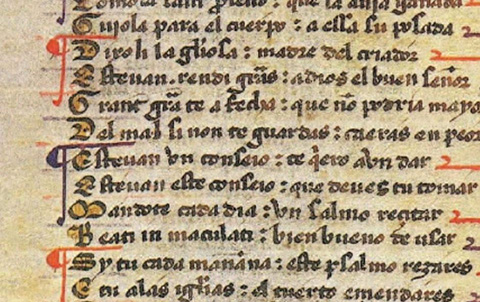 que la auja ganada
Guiola para el cuerpo : a ella su posada
Dixoli la gliosa : madre del criador
Esteuan rendi gras : a dios el buen señor
Grant gra te a fecha : que nõ podria mayo
Del mal si non te guardas : caeras en peor
Esteuan vn conseio : te qero avn dar
Esteuan este conseio : que deues tu tomar
Mandote cada dia : vn salmo recitar
Beati in maculati : bien bueno de vsar
Sy tu cada mañana : este psalmo rezares
E tu alas iglias : el tuerto emendares